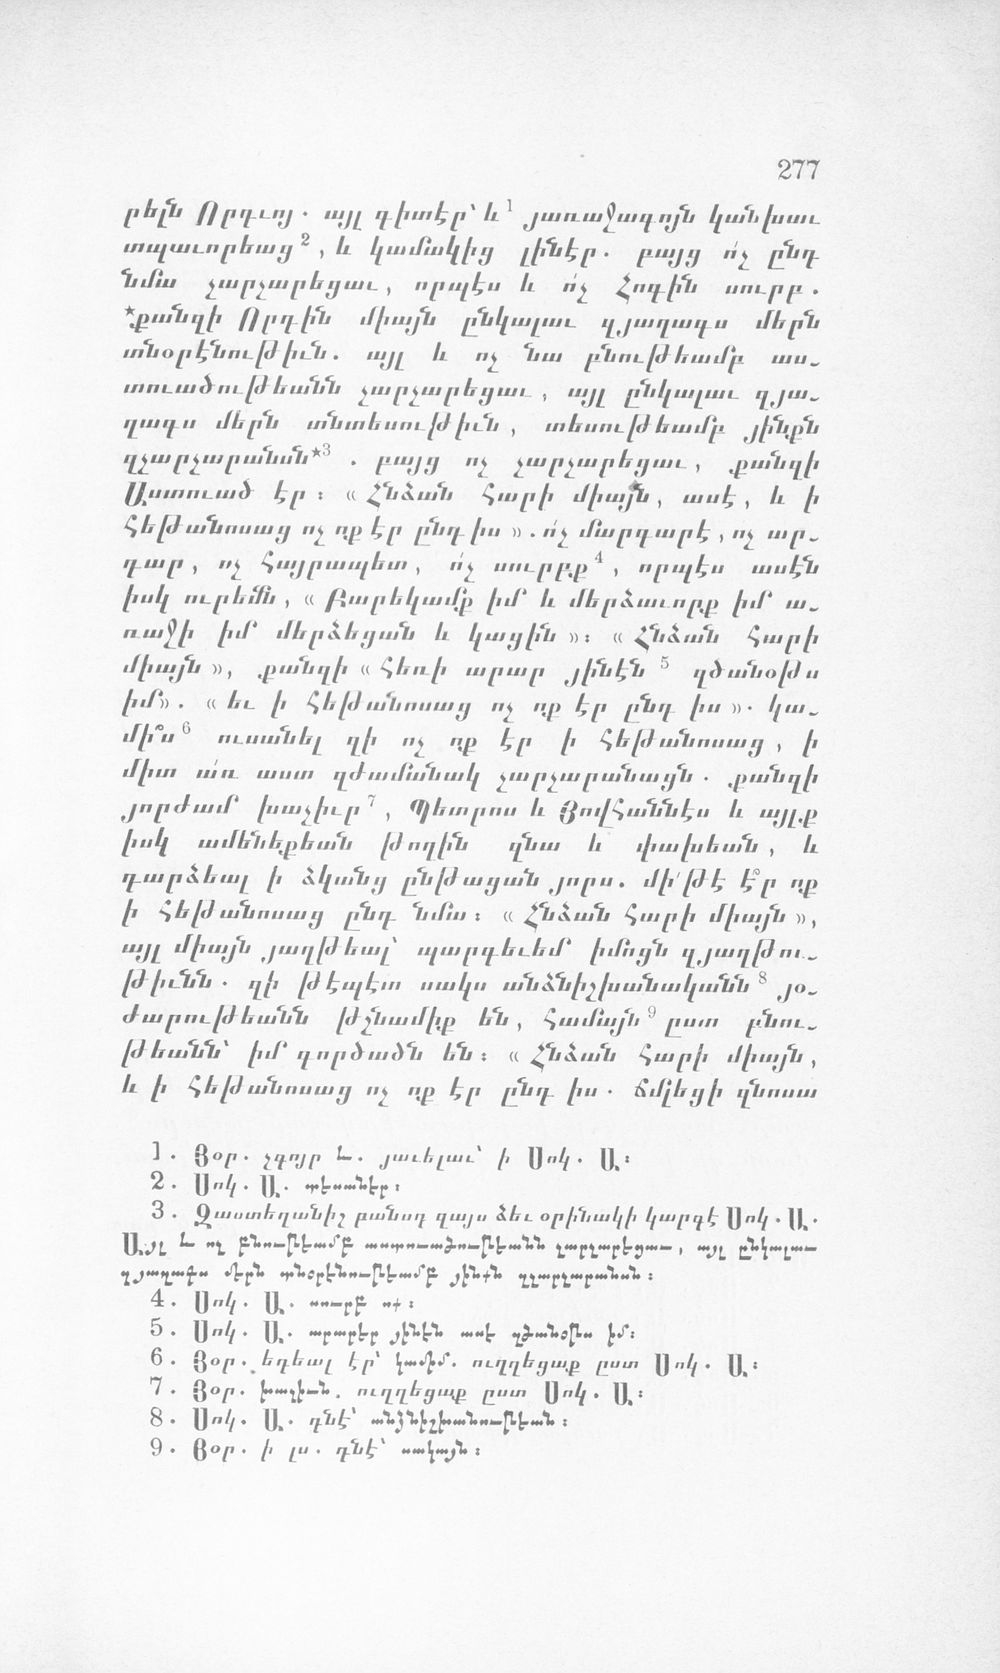 277
րելն Որդւոյ. այլ գիտէր՝ և¹ յառաջագոյն կանխաւ
տպաւորեաց², և կամակից լինէր. բայց ո՛չ ընդ
նմա չարչարեցաւ, որպէս և ո՛չ Հոգին սուրբ.
*քանզի Որդին միայն ընկալաւ զյաղագս մերն
տնօրէնութիւն. այլ և ոչ նա բնութեամբ աս֊
տուածութեանն չարչարեցաւ, այլ ընկալաւ զյա֊
ղագս մերն տնտեսութիւն, տեսութեամբ յինքն
զչարչարանսն*³. բայց ոչ չարչարեցաւ, քանզի
Աստուած էր: « Հնձան հարի միայն, ասէ, և ի
հեթանոսաց ոչ ոք էր ընդ իս ». ո՛չ մարգարէ, ոչ ար֊
դար, ոչ հայրապետ, ո՛չ սուրբք⁴, որպէս ասէն
իսկ ուրեմն, « Բարեկամք իմ և մերձաւորք իմ ա֊
ռաջի իմ մերձեցան և կացին »: « Հնձան հարի
միայն », քանզի « հեռի արար յինէն⁵ զծանօթս
իմ». « եւ ի հեթանոսաց ոչ ոք էր ընդ իս ». կա֊
մի՞ս⁶ ուսանել զի ոչ ոք էր ի հեթանոսաց, ի
միտ ա՛ռ աստ զժամանակ չարչարանացն. քանզի
յորժամ խաչիւր⁷, Պետրոս և Յովհաննէս և այլք
իսկ ամենեքեան թողին զնա և փախեան, և
դարձեալ ի ձկանց ընթացան յորս. մի՛ թէ է՞ր ոք
ի հեթանոսաց ընդ նմա: « Հնձան հարի միայն »,
այլ միայն յաղթեալ՝ պարգեւեմ իմոցն զյաղթու֊
թիւնն. զի թէպէտ սակս անձնիշխանականն⁸ յօ֊
ժարութեանն թշնամիք են, համայն⁹ ըստ բնու֊
թեանն՝ իմ գործածն են: « Հնձան հարի միայն,
և ի հեթանոսաց ոչ ոք էր ընդ իս. ճմլեցի զնոսա
1. Յօր. չգոյր և. յաւելաւ՝ ի Սոկ. Ա:
2. Սոկ. Ա. տեսանէր:
3. Զաստեղանիշ բանսդ զայս ձեւ օրինակի կարգէ Սոկ. Ա.
Այլ և ոչ բնութեամբ աստուածութեանն չարչարեցաւ, այլ ընկալաւ
զյաղագս մերն տնօրէնութեամբ յինքն զչարչարանսն:
4. Սոկ. Ա. սուրբ ոք:
5. Սոկ. Ա. արարեր յինէն ասէ զծանօթս իմ:
6. Յօր. եդեալ էր՝ կամիմ. ուղղեցաք ըստ Սոկ. Ա:
7. Յօր. խաչիւն. ուղղեցաք ըստ Սոկ. Ա:
8. Սոկ. Ա. դնէ՝ անձնիշխանութեան:
9. Յօր. ի լս. դնէ՝ սակայն: